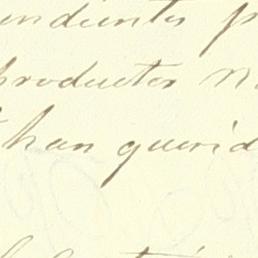 endientes p
productos n
han querid